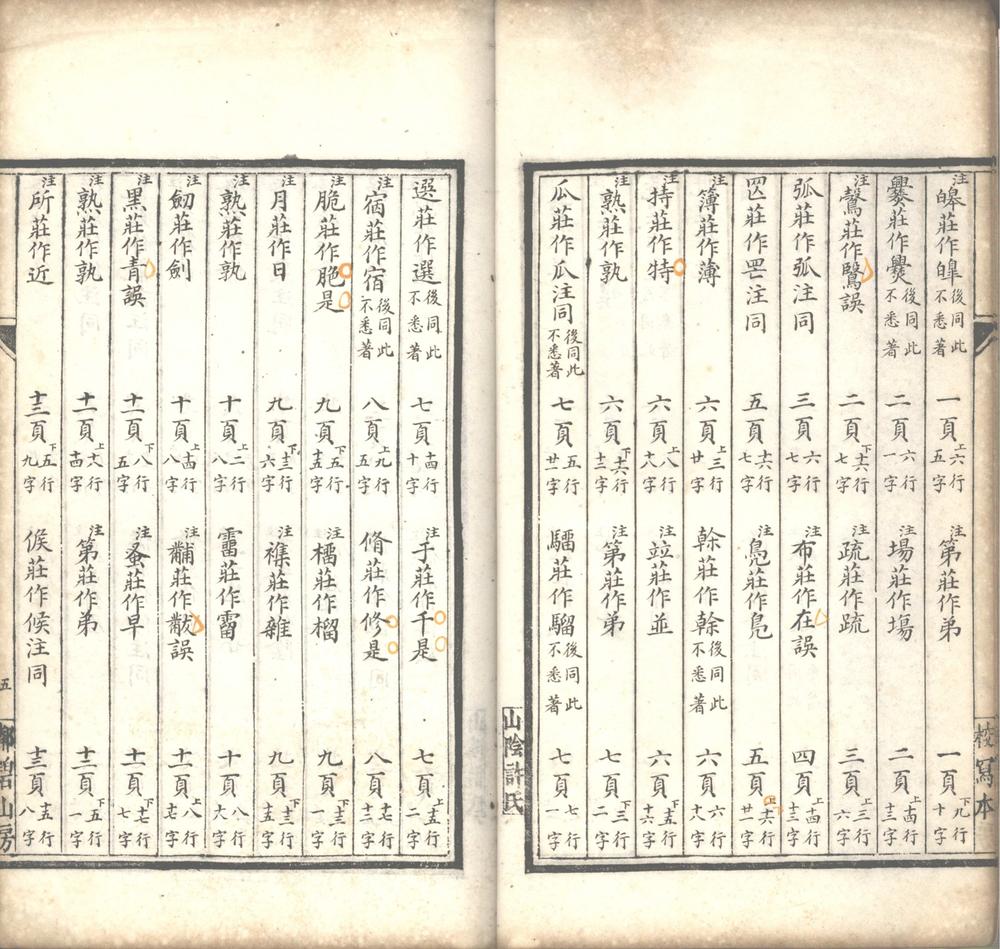 注皞莊作皡後同此不悉著 一頁上六行五字 注第莊作弟 一頁下九行十字
爨莊作爨後同此不悉著 二頁六行一字 注場莊作塲 二頁上十四行十三字
注鷖莊作鷖誤 二頁下十六行七字 注疏莊作疏 三頁上三行六字
弧莊作弧注同 三頁六行廿七字 注布莊作在誤 四頁上十四行十三字
罔莊作罔注同 五頁十六行七字 注鳧莊作鳬 五頁上十六行廿一字
注簿莊作薄 六頁上三行廿字 榦莊作幹後同此不悉著 六頁六行十九字
注持莊作特 六頁上八行十八字 注竝莊作並 六頁下十五行十六字
注熟莊作孰 六頁下十六行十三字 注第莊作弟 七頁下三行二字
瓜莊作瓜注同後同此不悉著 七頁五行廿一字 騮莊作騮後同此不悉著 七頁七行一字
選莊作選後同此不悉著 七頁十四行十字 注于莊作千是 七頁上十五行二字
注宿莊作宿後同此不悉著 八頁上九行十五字 脩莊作修是 八頁十七行十三字
注脆莊作脃是 九頁下五行十五字 注橊莊作榴 九頁下十三行一字
注月莊作日 九頁下十三行六字 注襍莊作雜 九頁下十三行十五字
注熟莊作孰 十頁上二行八字 靁莊作雷 十頁八行十六字
注劒莊作劍 十頁上十四行八字 注黼莊作黻誤 十一頁上八行十七字
注黑莊作青誤 十一頁下八行五字 注蚤莊作早 十一頁下十七行七字
注熟莊作孰 十二頁上十六行十四字 注第莊作弟 十二頁下五行一字
注所莊作近 十三頁下五行九字 候莊作候注同 十三頁十五行八字
校寫本
山陰許氏
五
山房